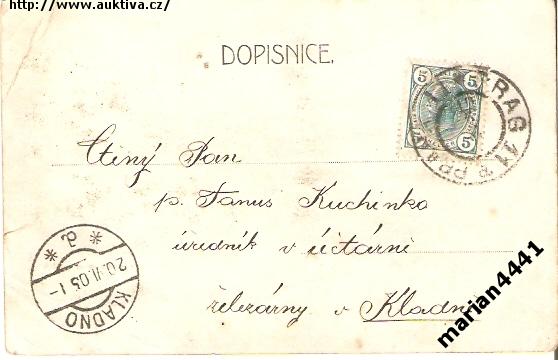 http://www.auktiva.cz/
DOPISNICE.
5 5
5
PRAG 11
Ctěný Pan
p. Hanus Kuchinka
úředník v účtárni
železárny v Kladně
* d *
20.II.05.1-
KLADNO
marian4441